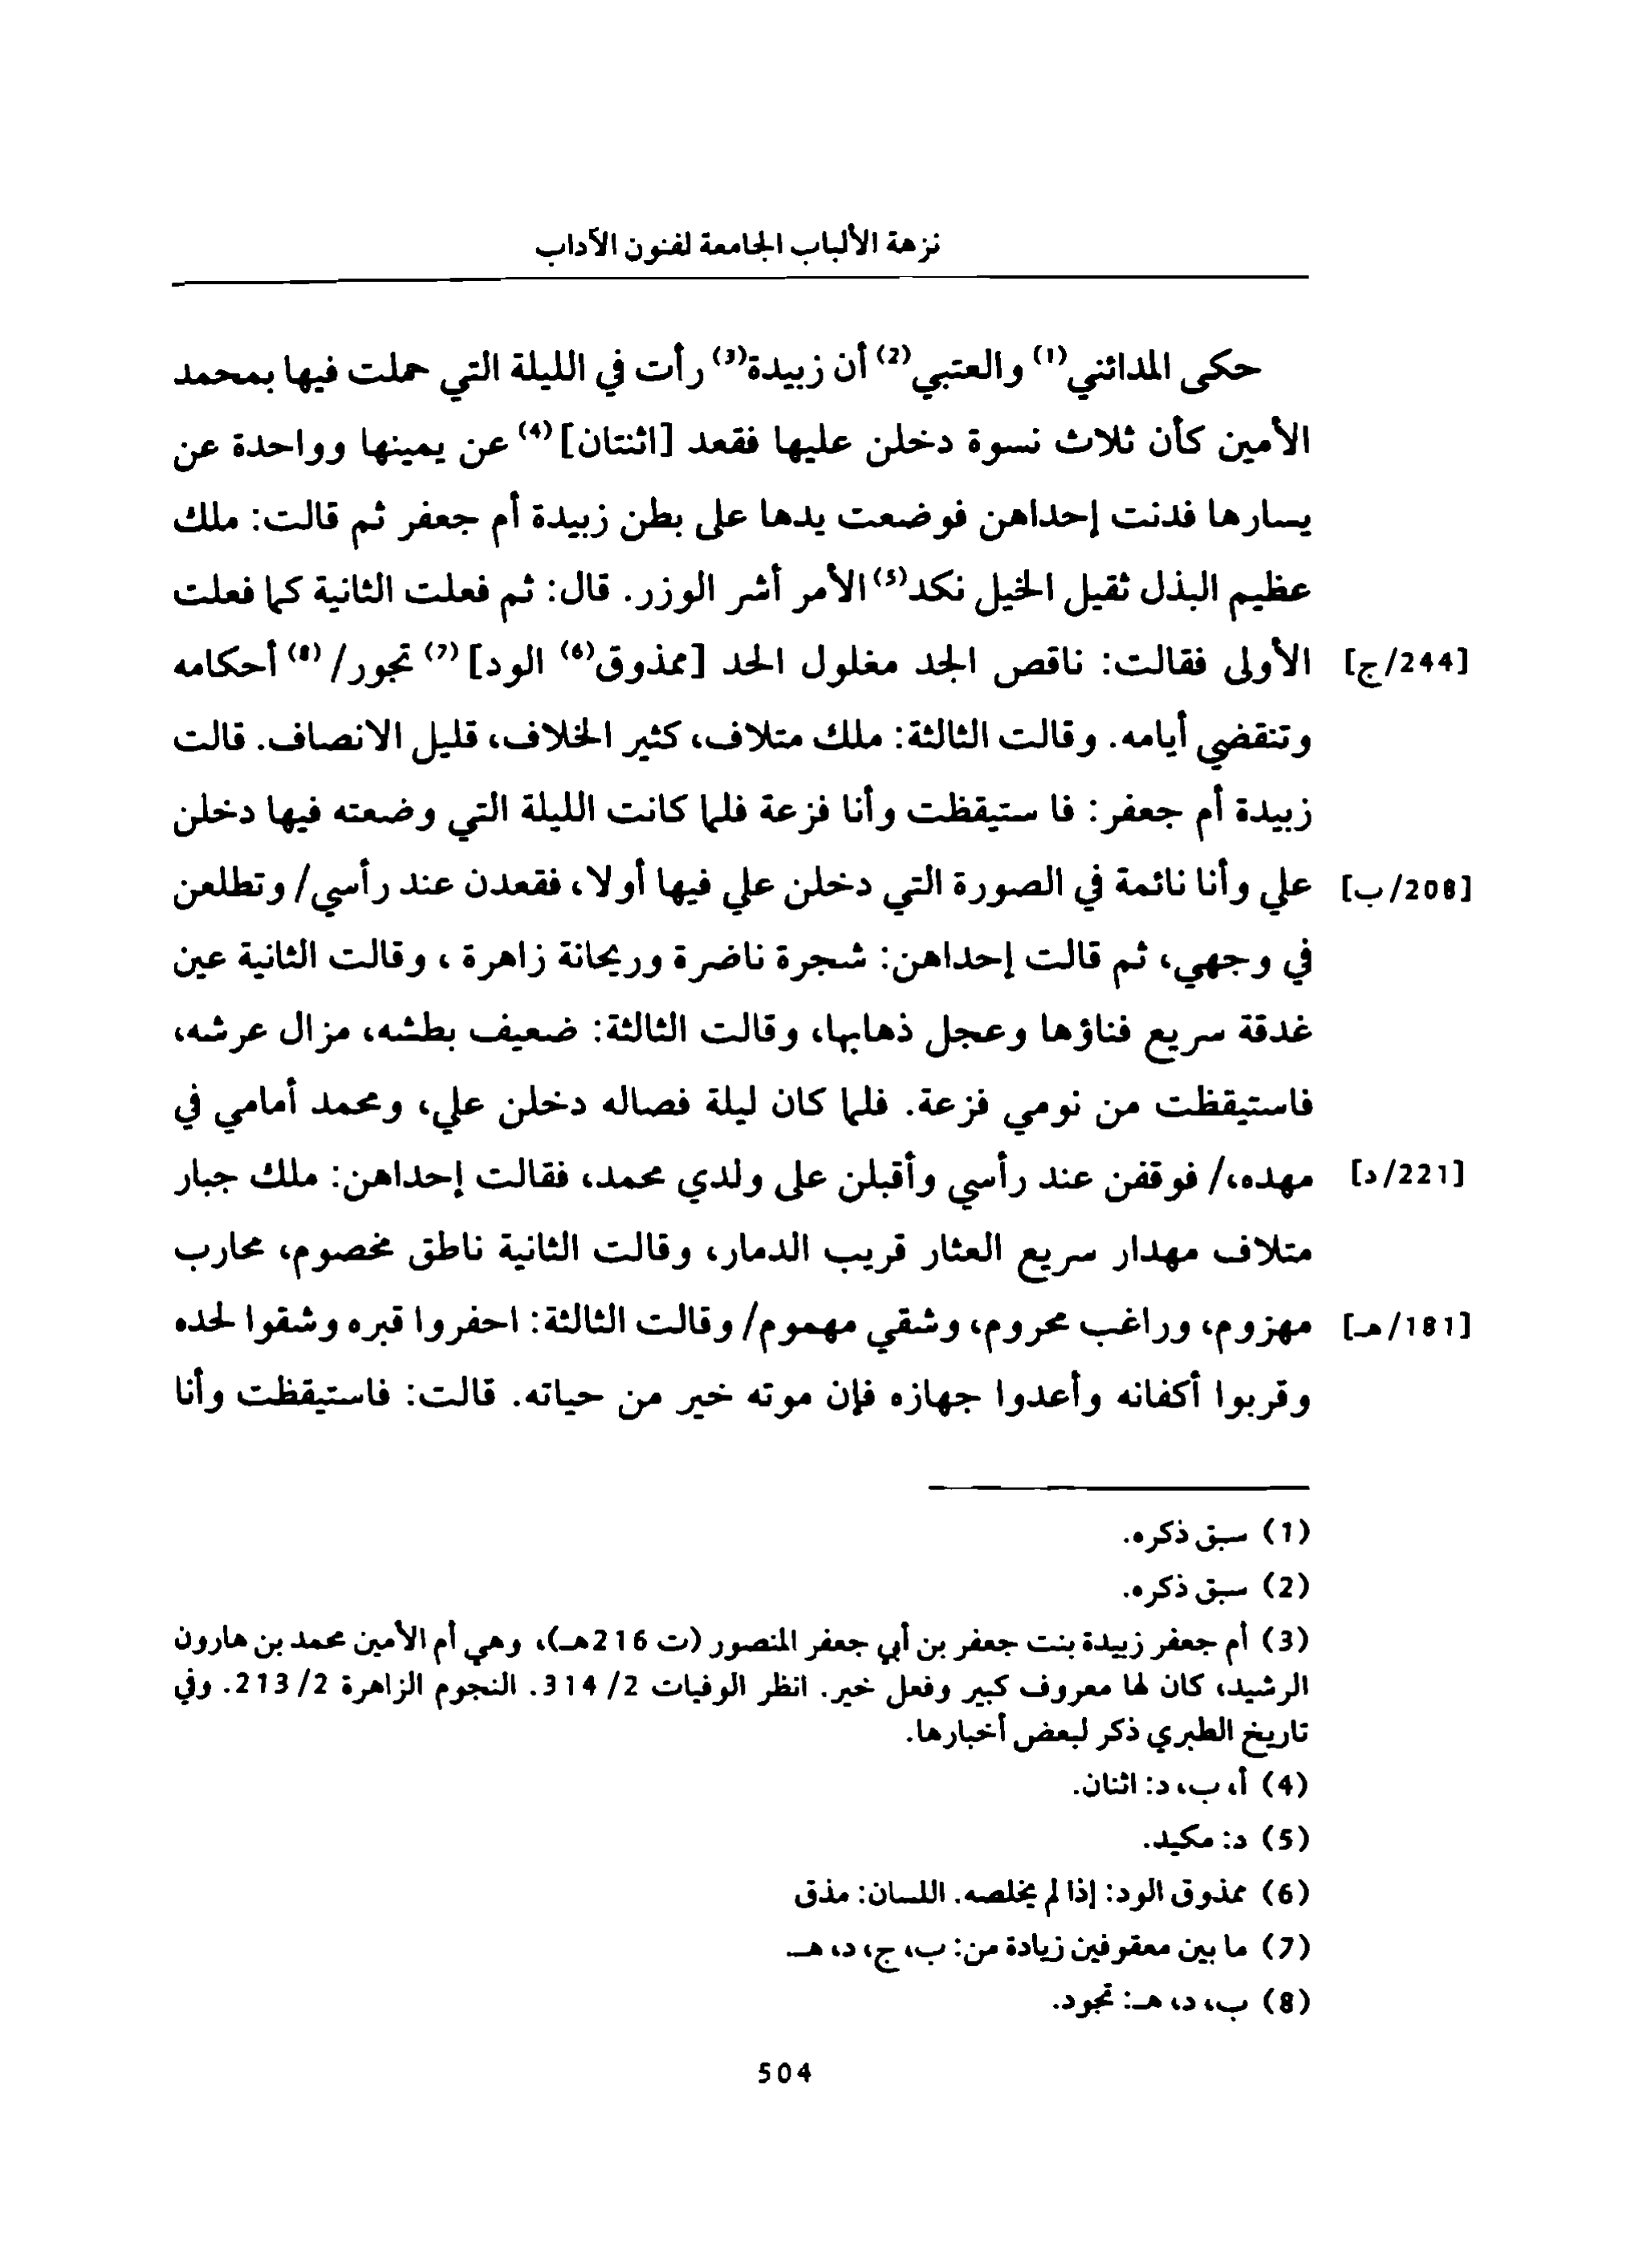 نزهة الألباب الجامعة لفنون الآداب
حكى المدائني(1) والعتبي(2) أن زبيدة(3) رأت في الليلة التي حملت فيها بمحمد
الأمين كأن ثلاث نسوة دخلن عليها فقعد [اثنتان](4) عن يمينها وواحدة عن
يسارها فدنت إحداهن فوضعت يدها على بطن زبيدة أم جعفر ثم قالت: ملك
عظيم البذل ثقيل الخيل نكد(5) الأمر أشر الوزر. قال: ثم فعلت الثانية كما فعلت
[244/ج] الأولى فقالت: ناقص الجد مغلول الحد [ممذوق(6) الود](7) تجور/(8) أحكامه
وتنقضي أيامه. وقالت الثالثة: ملك متلاف، كثير الخلاف، قليل الانصاف. قالت
زبيدة أم جعفر: فا ستيقظت وأنا فزعة فلما كانت الليلة التي وضعته فيها دخلن
[208/ب] علي وأنا نائمة في الصورة التي دخلن علي فيها أولا، فقعدن عند رأسي/ وتطلعن
في وجهي، ثم قالت إحداهن: شجرة ناضرة وريحانة زاهرة ، وقالت الثانية عين
غدقة سريع فناؤها وعجل ذهابها، وقالت الثالثة: ضعيف بطشه، مزال عرشه،
فاستيقظت من نومي فزعة. فلما كان ليلة فصاله دخلن علي، ومحمد أمامي في
[221/د] مهده،/ فوقفن عند رأسي وأقبلن على ولدي محمد، فقالت إحداهن: ملك جبار
متلاف مهدار سريع العثار قريب الدمار، وقالت الثانية ناطق مخصوم، محارب
[181/هـ] مهزوم، وراغب محروم، وشقي مهموم/ وقالت الثالثة: احفروا قبره وشقوا لحده
وقربوا أكفانه وأعدوا جهازه فإن موته خير من حياته. قالت: فاستيقظت وأنا
(1) سبق ذكره.
(2) سبق ذكره.
(3) أم جعفر زبيدة بنت جعفر بن أبي جعفر المنصور (ت 216هـ)، وهي أم الأمين محمد بن هارون
الرشيد، كان لها معروف كبير وفعل خير. انظر الوفيات 2/ 314. النجوم الزاهرة 2/ 213. وفي
تاريخ الطبري ذكر لبعض أخبارها.
(4) أ، ب، د: اثنان.
(5) د: مكيد.
(6) ممذوق الود: إذا لم يخلصه. اللسان: مذق
(7) ما بين معقوفين زيادة من: ب، ج، د، هـ
(8) ب، د، هـ: تجود.
504